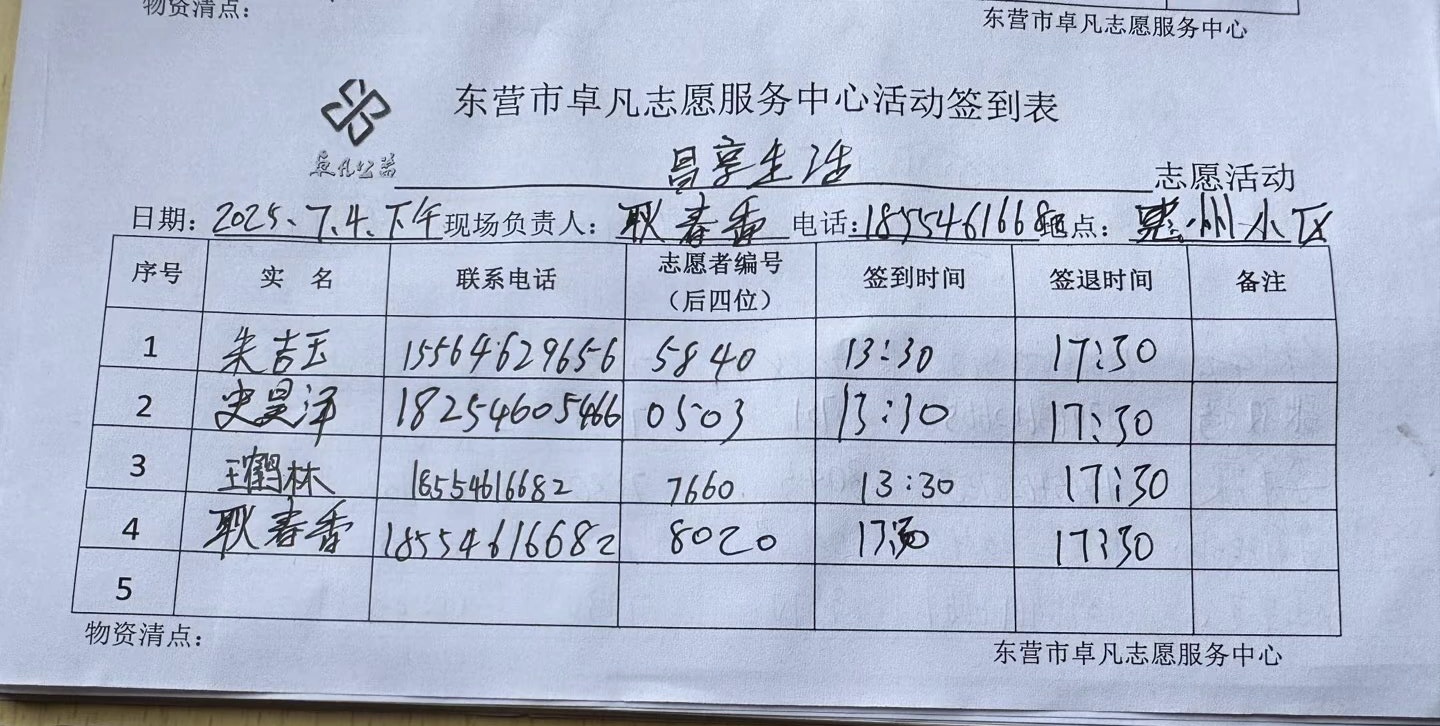 物资清点：
东营市卓凡志愿服务中心
东营市卓凡志愿服务中心活动签到表
卓凡公益
昌享生活 志愿活动
日期：2025、7.4.下午 现场负责人：耿春香 电话：1855461668 地点：惠州小区
序号 实 名 联系电话 志愿者编号（后四位） 签到时间 签退时间 备注
1 朱吉玉 15564629656 5840 13:30 17:30
2 史昊洋 18254605466 0503 13:30 17:30
3 王鹤林 18554616682 7660 13:30 17:30
4 耿春香 18554616682 8020 17:30
5
物资清点：
东营市卓凡志愿服务中心